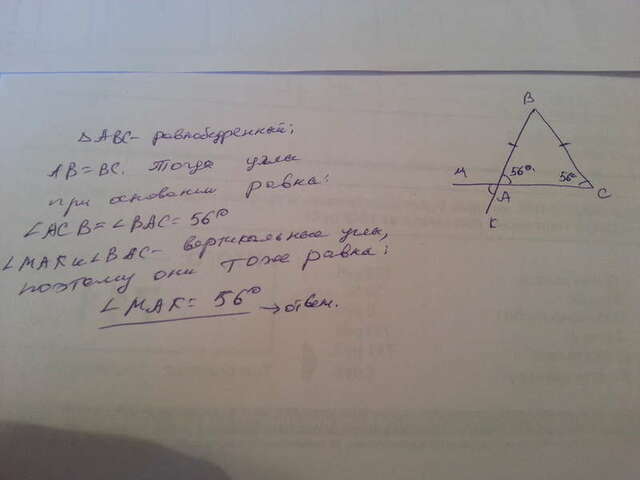 ∆ABC- равнобедренный;
AB=BC. Тогда углы
при основании равна:
∠ACB=∠BAC=56°
∠MAK и ∠BAC- вертикальные углы,
поэтому они тоже равна:
∠MAK= 56° → ответ.
B
M
56°.
56°
A
C
K